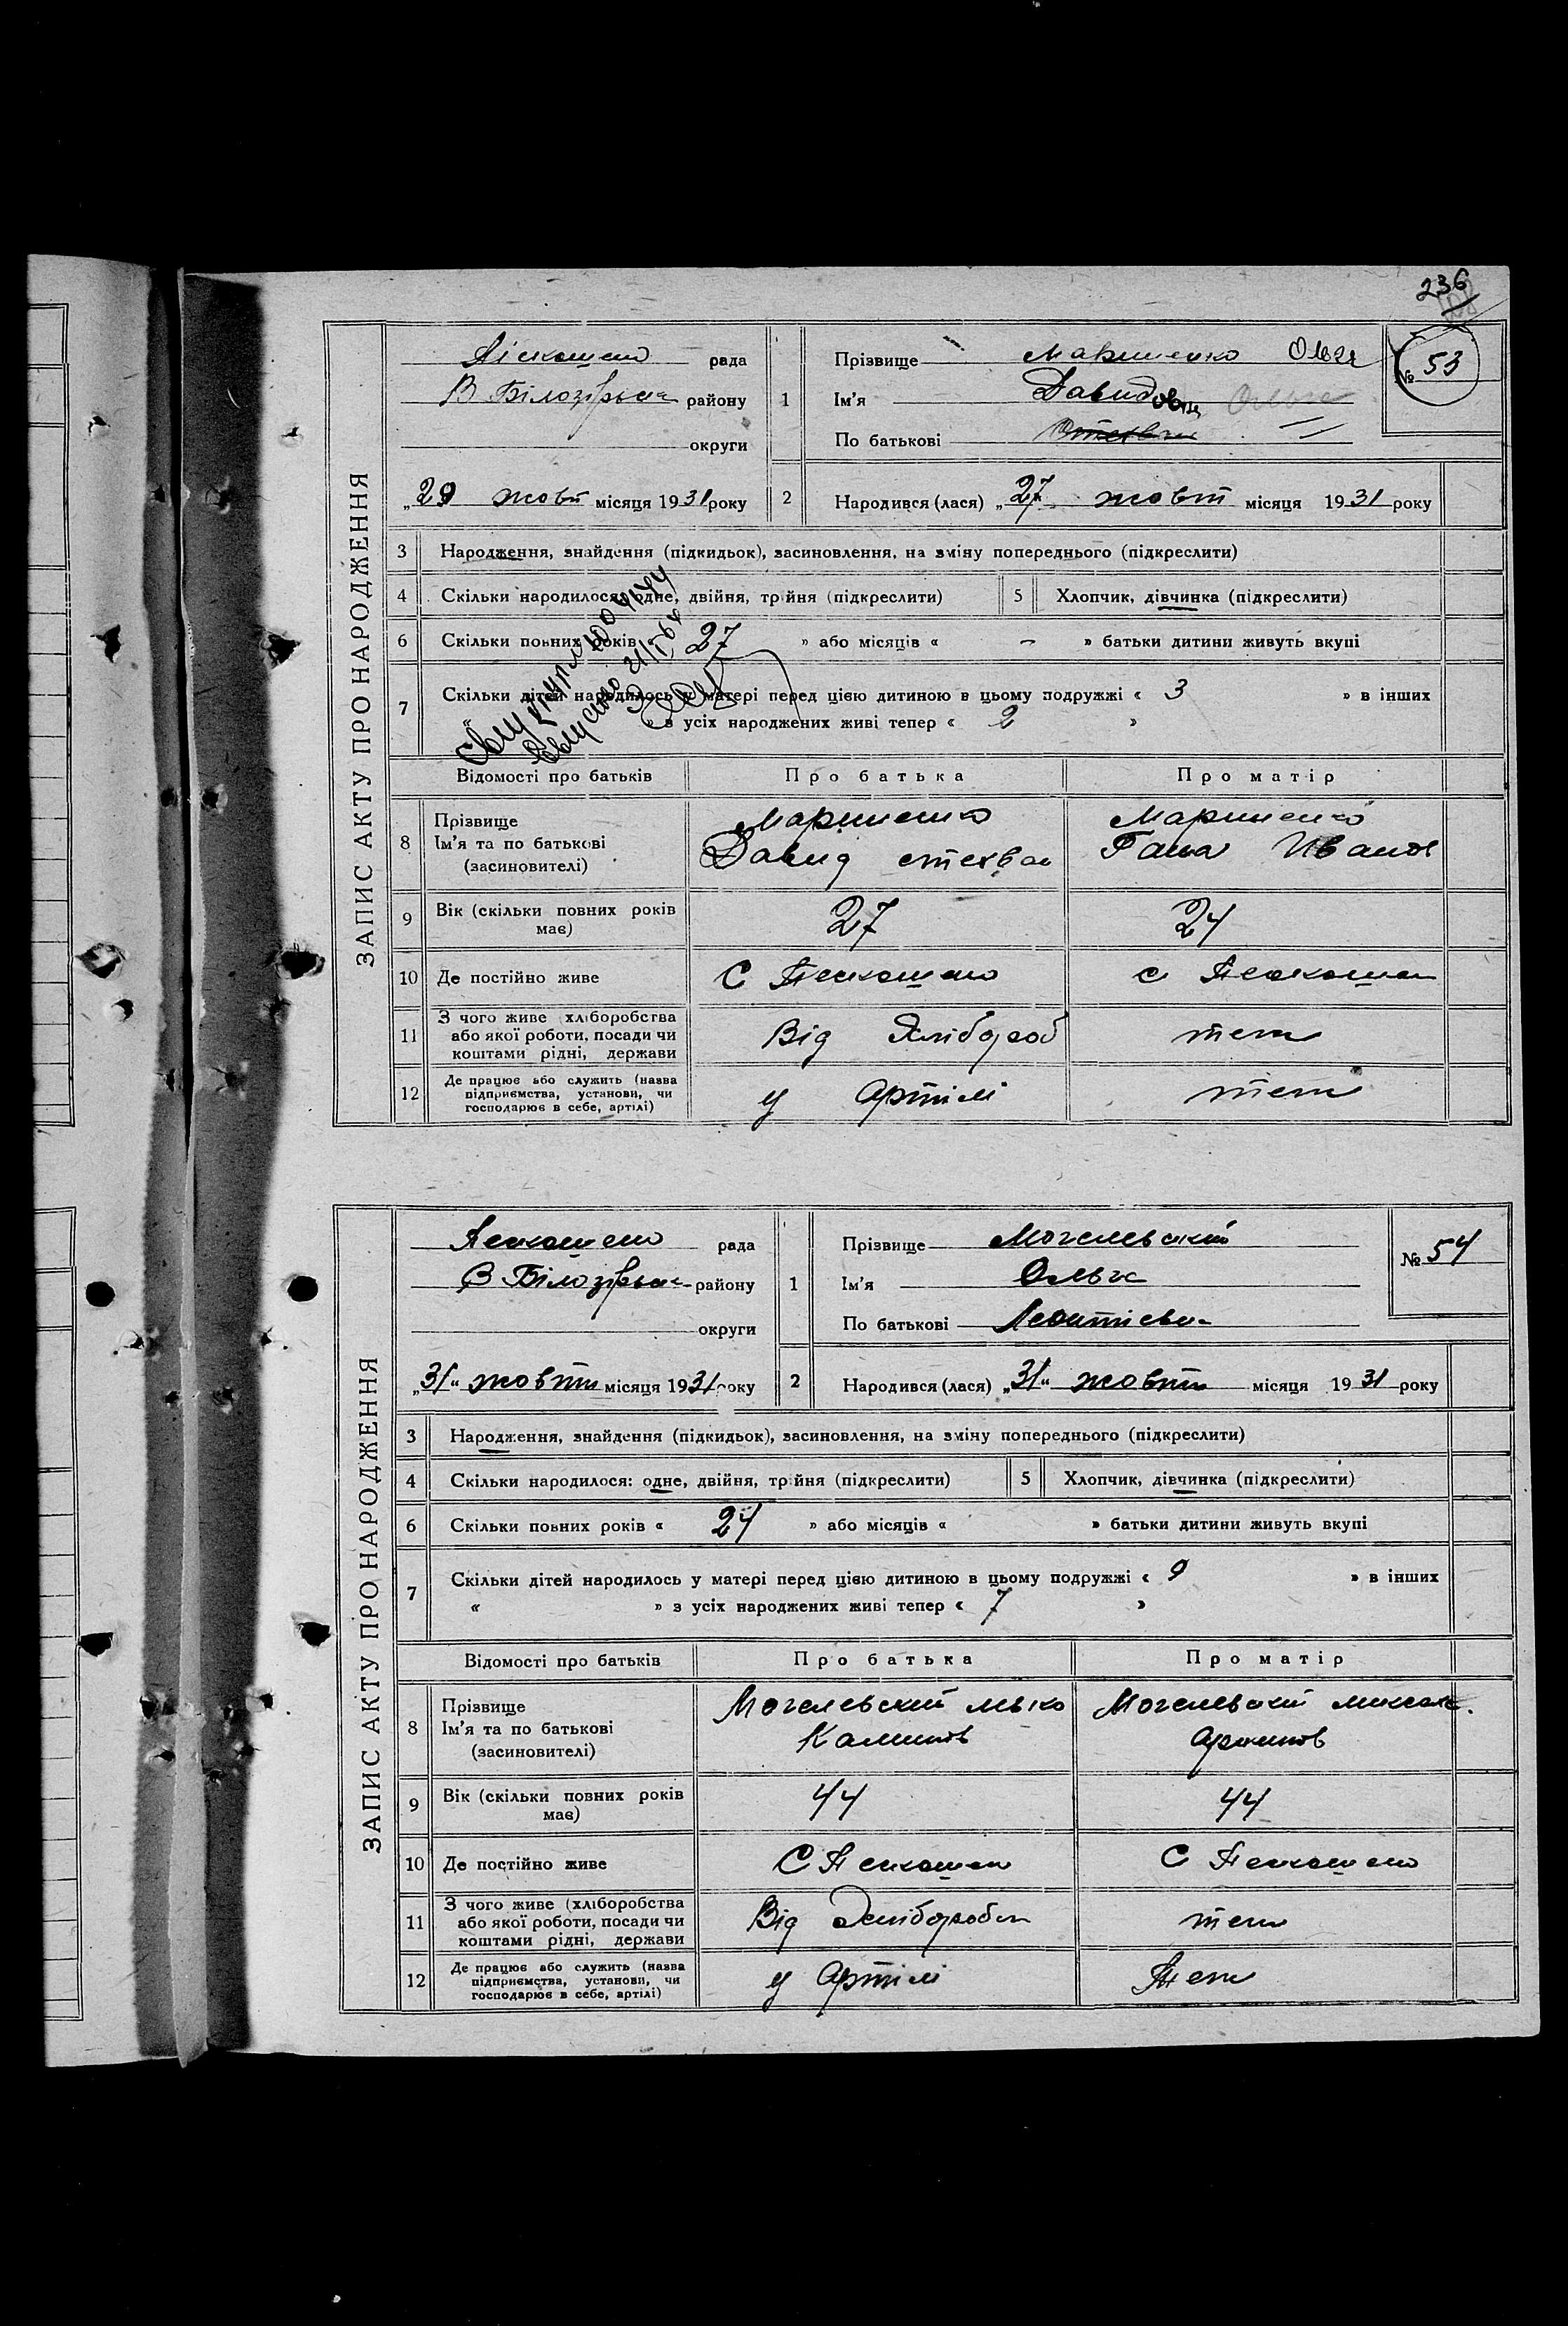 236
ЗАПИС АКТУ ПРО НАРОДЖЕННЯ
рада
В Білозірська району
округи
„29 жовт місяця 1931 року
1
Прізвище Мариненко Ольга
Ім’я Давидовна Ольга
По батькові
№ 53
2 Народився (лася) „27 жовт місяця 1931 року
3 Народження, знайдення (підкидьок), засиновлення, на зміну попереднього (підкреслити)
4 Скільки народилося: одне, двійня, трійня (підкреслити) 5 Хлопчик, дівчинка (підкреслити)
6 Скільки повних років « 27 » або місяців « – » батьки дитини живуть вкупі
7 Скільки дітей народилось у матері перед цією дитиною в цьому подружжі « 3 » в інших
» з усіх народжених живі тепер « 2 »
Відомості про батьків Про батька Про матір
8 Прізвище Мариненко Мариненко
Ім’я та по батькові Давид Иванов
(засиновителі)
9 Вік (скільки повних років має) 27 24
10 Де постійно живе С с
11 З чого живе (хліборобства
або якої роботи, посади чи Від Хлібороб теж
коштами рідні, держави
12 Де працює або служить (назва
підприємства, установи, чи у Артілі теж
господарює в себе, артілі)
ЗАПИС АКТУ ПРО НАРОДЖЕННЯ
рада
В Білозірська району
округи
„31“ жовтн місяця 1931 року
1
Прізвище Могелевский
Ім’я Ольга
По батькові Леонтієвн
№ 54
2 Народився (лася) „31“ жовтн місяця 1931 року
3 Народження, знайдення (підкидьок), засиновлення, на зміну попереднього (підкреслити)
4 Скільки народилося: одне, двійня, трійня (підкреслити) 5 Хлопчик, дівчинка (підкреслити)
6 Скільки повних років « 24 » або місяців « » батьки дитини живуть вкупі
7 Скільки дітей народилось у матері перед цією дитиною в цьому подружжі « 9 » в інших
« » з усіх народжених живі тепер « 7 »
Відомості про батьків Про батька Про матір
8 Прізвище Могелевский Могелевский
Ім’я та по батькові
(засиновителі)
9 Вік (скільки повних років має) 44 44
10 Де постійно живе С С
11 З чого живе (хліборобства
або якої роботи, посади чи Від Хлібороби теж
коштами рідні, держави
12 Де працює або служить (назва
підприємства, установи, чи у Артілі Теж
господарює в себе, артілі)